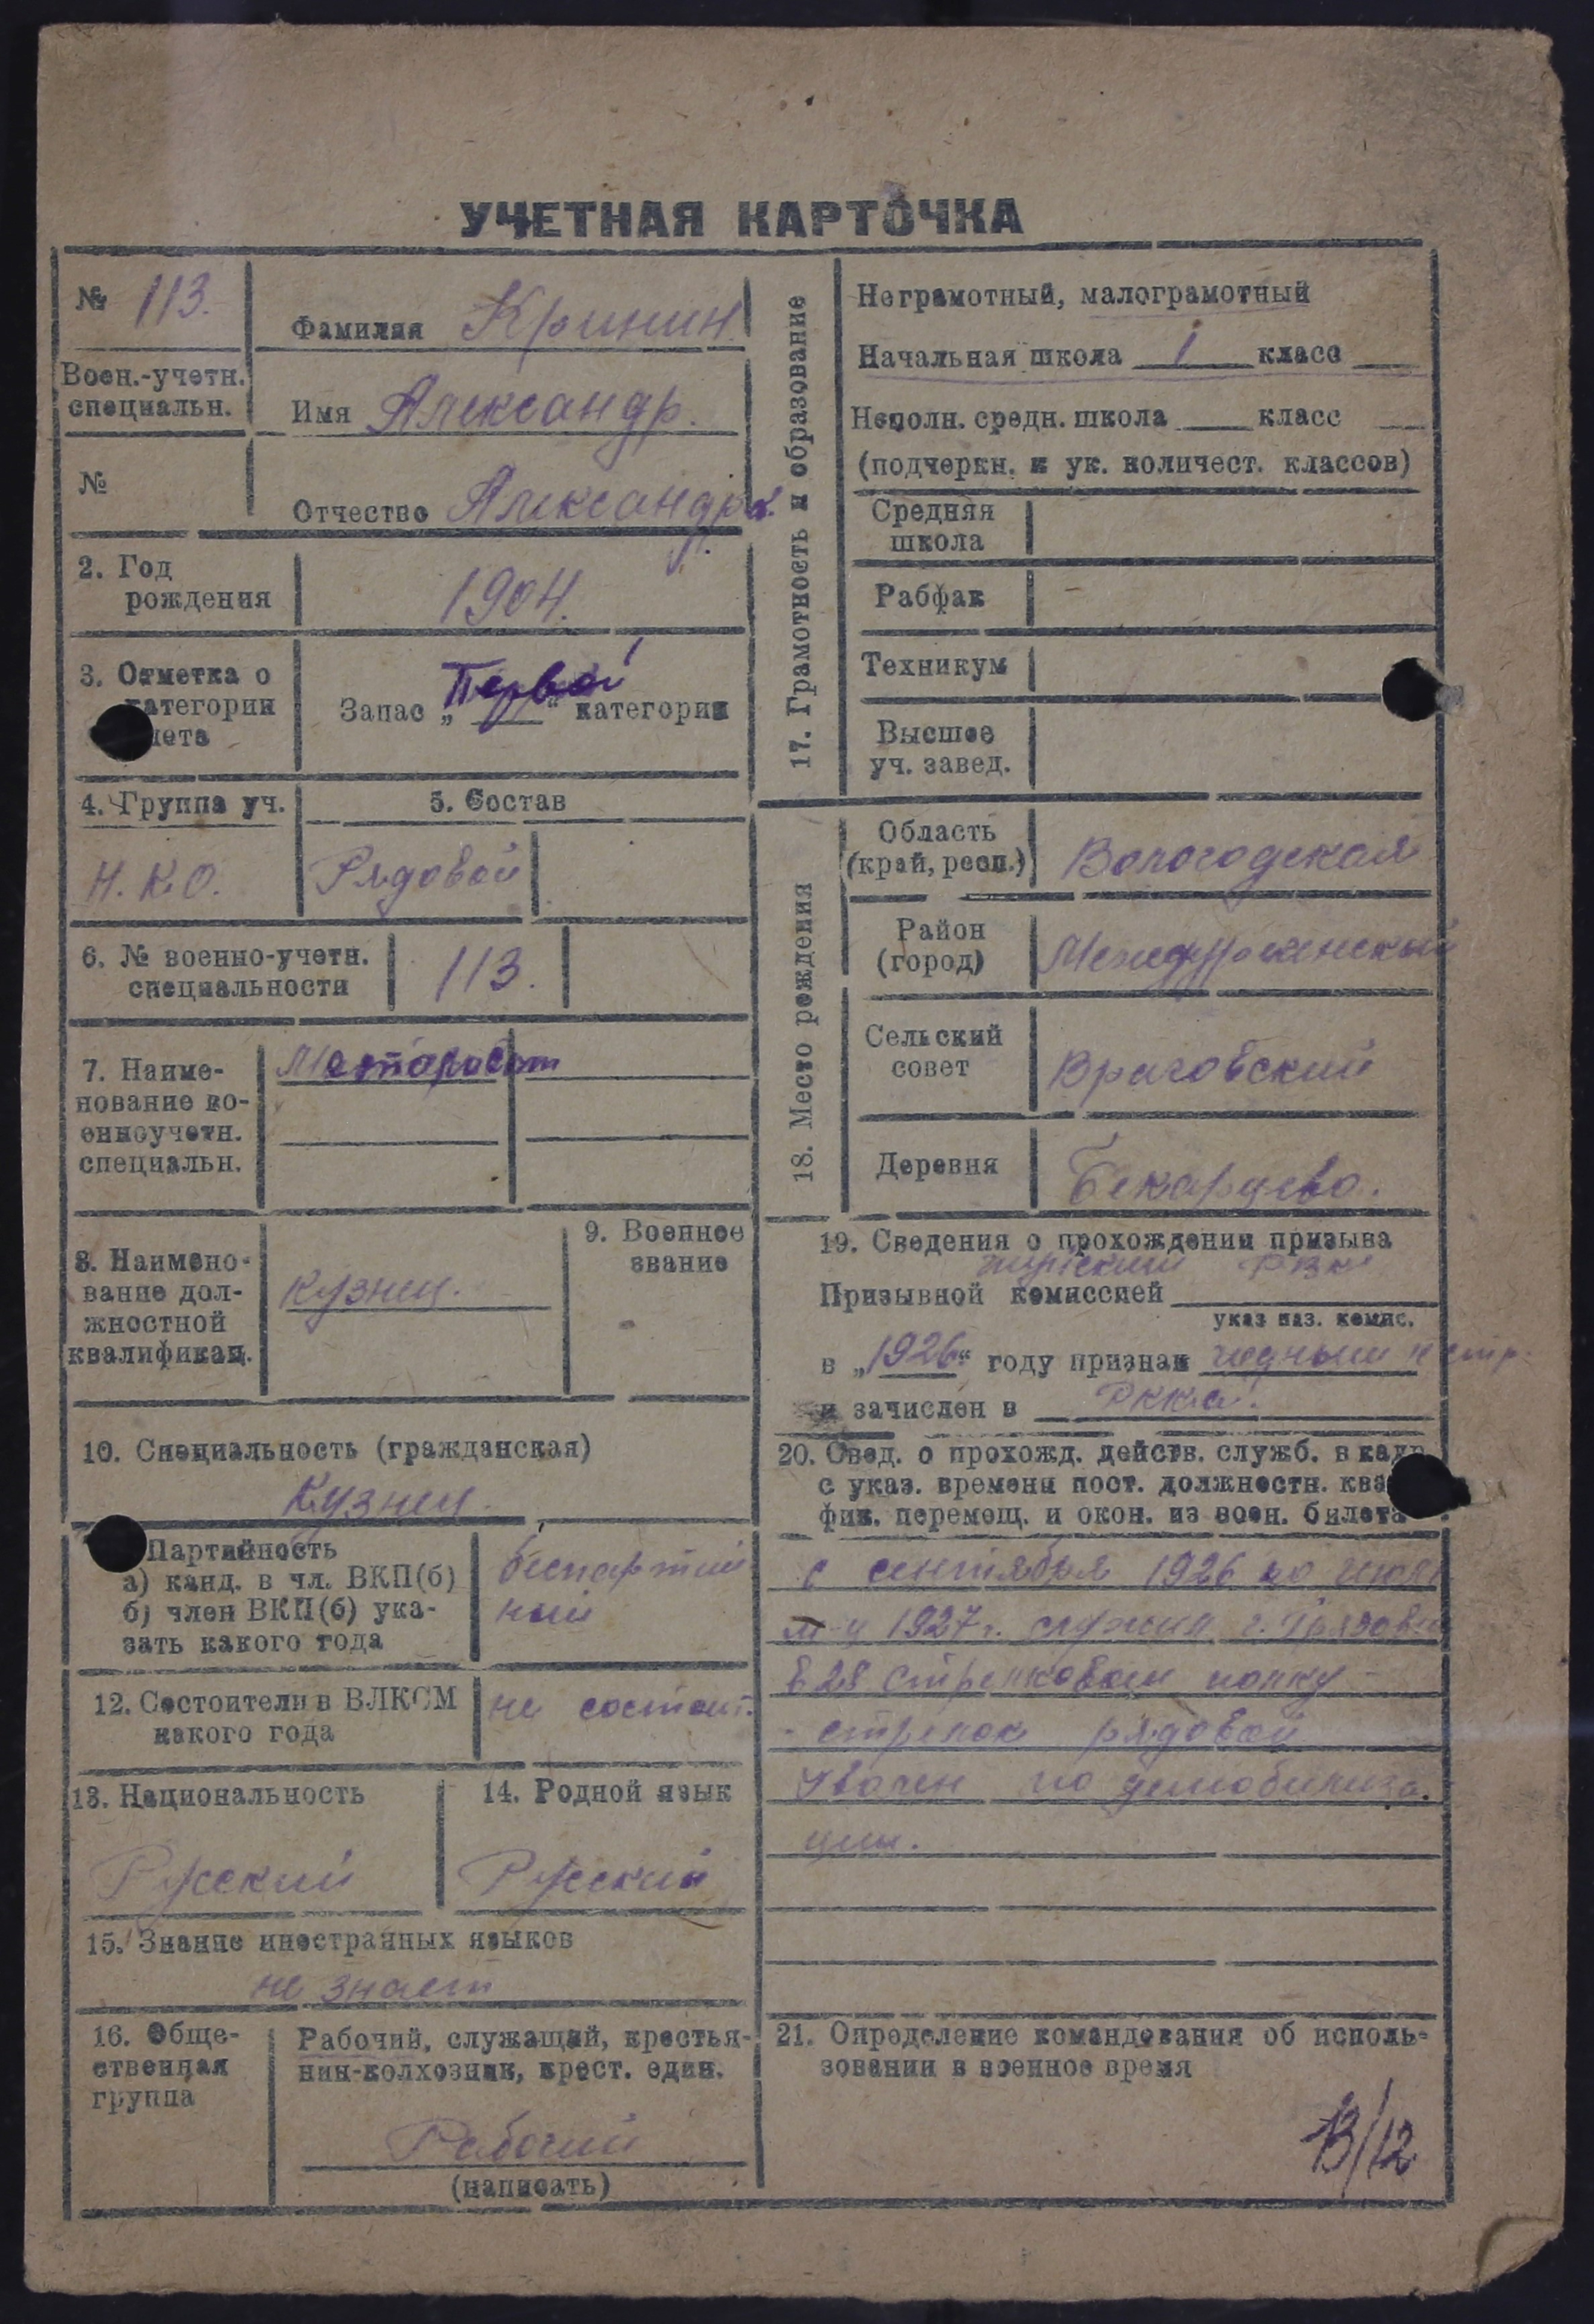 УЧЕТНАЯ КАРТОЧКА
№ 113.
Фамилия Кринин
Воен.-учетн.
специальн.
Имя Александр.
№
Отчество Александр.
2. Год
рождения
1904.
3. Отметка о
категории
учета
Запас „Первой“ категории
4. Группа уч.
Н.К.О.
5. Состав
Рядовой
6. № военно-учетн.
специальности
113.
7. Наиме-
нование во-
енноучетн.
специальн.
8. Наимено-
вание дол-
жностной
квалификац.
Кузнец.
9. Военное
звание
10. Специальность (гражданская)
Кузнец.
Партийность
а) канд. в чл. ВКП(б)
б) член ВКП(б) ука-
зать какого года
беспартий
ный
12. Состоит ли в ВЛКСМ
какого года
не состоит.
13. Национальность
Русский
14. Родной язык
Русский
15. Знание иностранных языков
не знает
16. Обще-
ственная
группа
Рабочий, служащий, крестья-
нин-колхозник, крест. един.
Рабочий
(написать)
17. Грамотность и образование
Неграмотный, малограмотный
Начальная школа 1 класс
Неполн. средн. школа класс
(подчеркн. и ук. количест. классов)
Средняя
школа
Рабфак
Техникум
Высшее
уч. завед.
18. Место рождения
Область
(край, респ.)
Вологодская
Район
(город)
Междуреченский
Сельский
совет
Враговский
Деревня
Бекарево.
19. Сведения о прохождении призыва
Призывной комиссией РВК
указ наз. комис.
в „1926“ году признан годным к стр.
и зачислен в РККА.
20. Свед. о прохожд. действ. служб. в кадр.
с указ. времени пост. должностн. ква
фик. перемещ. и окон. из воен. билета
с сентября 1926 по июль
м-ц 1927 г. служил г. Грязовец
в 28 стрелковом полку -
- стрелок рядовой
Уволен по демобилиза.
ции.
21. Определение командования об исполь-
зовании в военное время
13/12